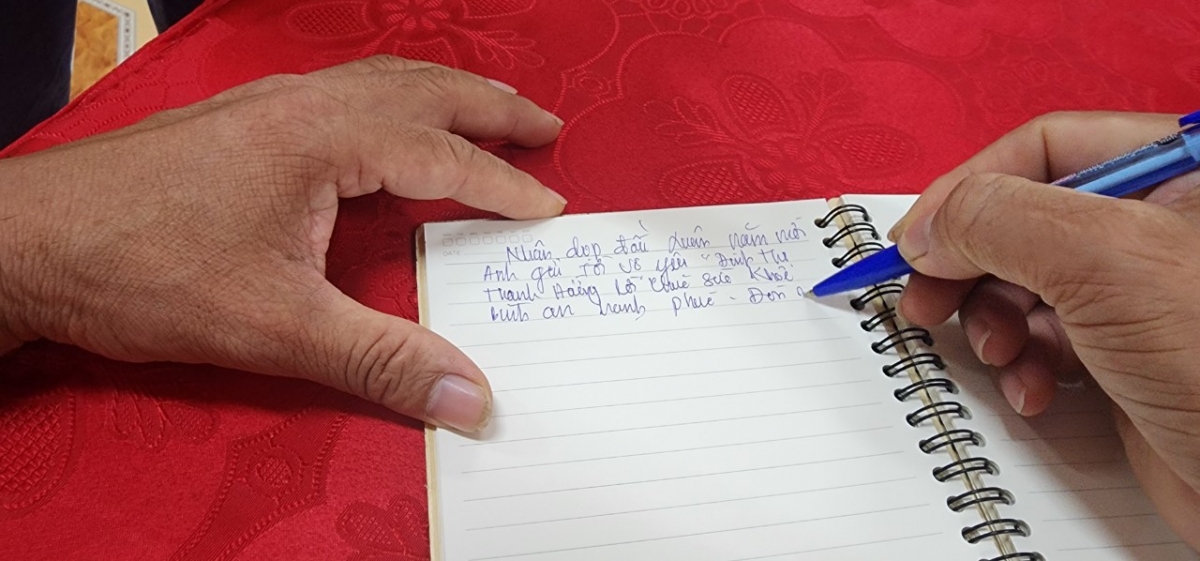 Nhân dịp đầu xuân năm mới
Anh gửi tới vợ yêu "Đinh Thị
Thanh Hằng lời chúc sức khoẻ
bình an hạnh phúc. Đón